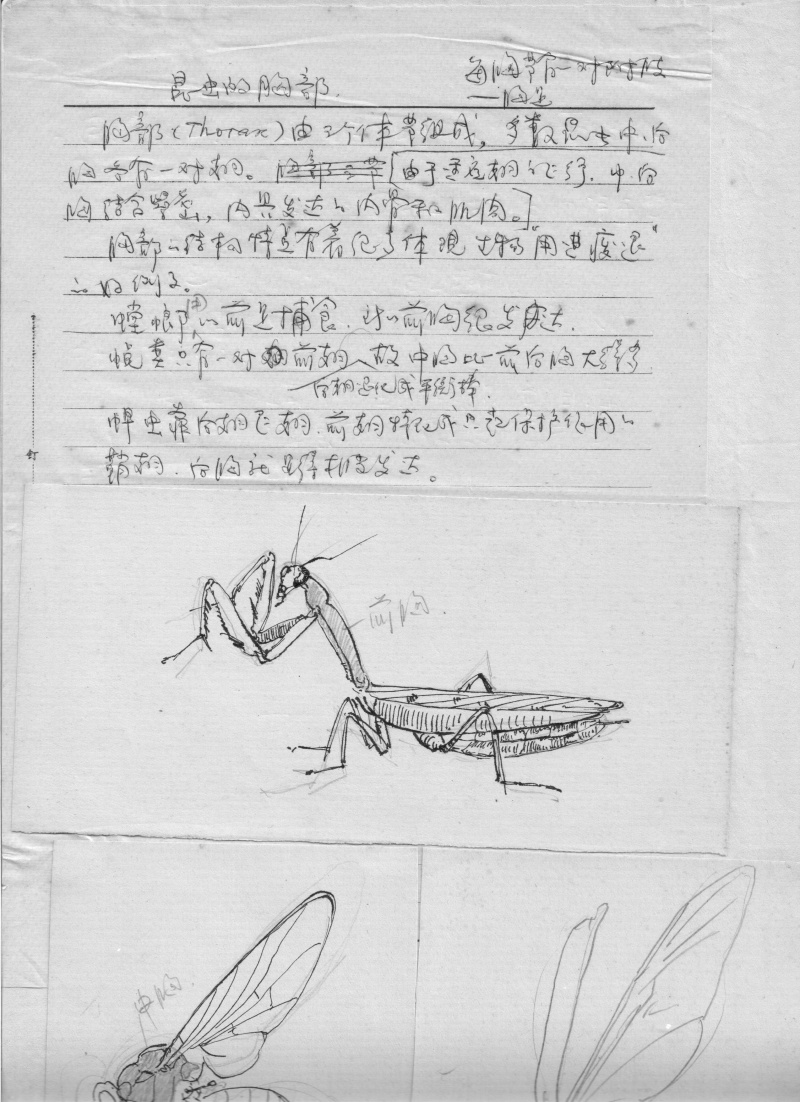 昆虫的胸部.
每胸节有一对附肢
—胸足
胸部(Thorax)由三个体节组成，多数昆虫中、后
胸各有一对翅。胸部三节[由于适应翅的飞行.中、后
胸结合紧密，内具发达的内骨和肌肉。]
胸部的结构特点有着很多体现生物"用进废退"
的好例子。
螳螂用的前足捕食.所以前胸很发达.
蚊类只有一对前翅、故中胸比前后胸大得多
后翅退化成平衡棒.
甲虫靠后翅飞翔.前翅特化成只起保护作用的
鞘翅.后胸就显得相当发达。
钉
前胸.
中胸.